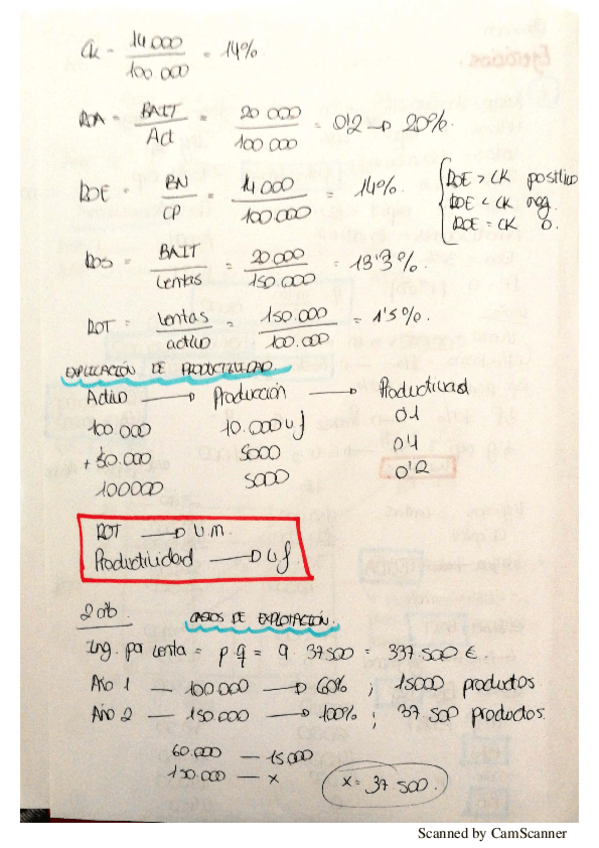 CK = 14.000 / 100.000 = 14%
ROA = BAIT / Act = 20 000 / 100 000 = 0'2 → 20%.
ROE = BN / CP = 14000 / 100000 = 14%. { ROE > CK positivo
ROE < CK neg.
ROE = CK 0.
ROS = BAIT / Ventas = 20 000 / 150.000 = 13'3%.
ROT = Ventas / activo = 150.000 / 100.000 = 1'5%.
EXPLICACIÓN DE PRODUCTIVIDAD.
Activo → Producción → Productividad
100 000 10.000 u.f 0.1
+50.000 5000 0.1
100000 5000 0'2
ROT → U.M.
Productividad → U f
2 ob. CASOS DE EXPLOTACIÓN.
Ing. por venta = p.q = 9. 37500 = 337 500 €.
Año 1 — 100.000 → 60% ; 15000 productos
Año 2 — 150.000 → 100% ; 37.500 productos.
60.000 — 15000
150.000 — x x = 37 500.
Scanned by CamScanner